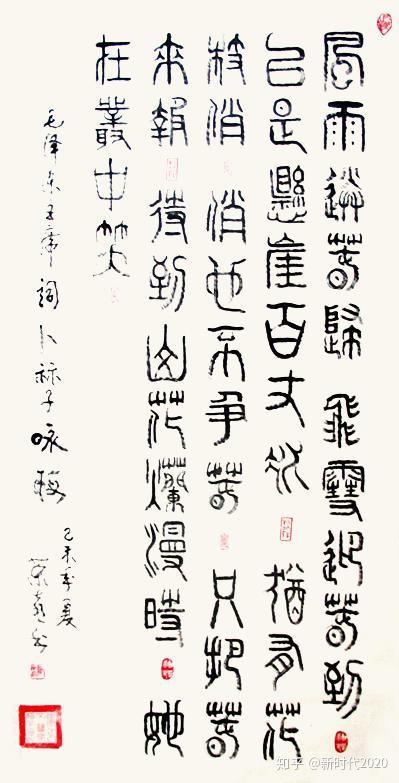 風雨送春歸 飛雪迎春到
已是懸崖百丈冰 猶有花
枝俏 俏也不爭春 只把春
來報 待到山花爛漫時 她
在叢中笑
毛澤东主席詞卜祘子咏梅
己未季夏
知乎 @新时代2020